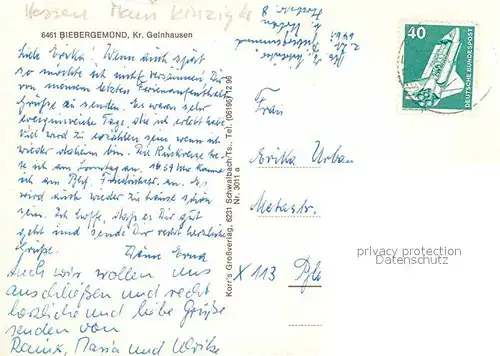 Hessen Main Kinzig Kr
6461 BIEBERGEMÜND, Kr. Gelnhausen
Liebe Erika! Wenn auch spät
so möchte ich nicht versäumen Dir
von meinem letzten Ferienaufenthalt
Grüße zu senden. Es waren sehr
ereignisreiche Tage, die ich erlebt habe
Viel wird zu erzählen sein wenn ich
wieder daheim bin. Die Rückreise
ich am Sonntag an. 16.59 Uhr komme
ich am Bhf. an. Es
wird auch wieder zu Hause schön
sein. Ich hoffe, daß es Dir gut
geht und sende Dir recht herzliche
Grüße. Deine Erna
Auch wir wollen uns
anschließen und recht
herzliche und liebe Grüße
senden von
Rainer, Maria und Ulrike
Korr's Großverlag, 6231 Schwalbach/Ts., Tel. (06196) 12 96
Nr. 3011 a
6461
40
DEUTSCHE BUNDESPOST
Frau
Erika Urban
X 113
privacy protection
Datenschutz